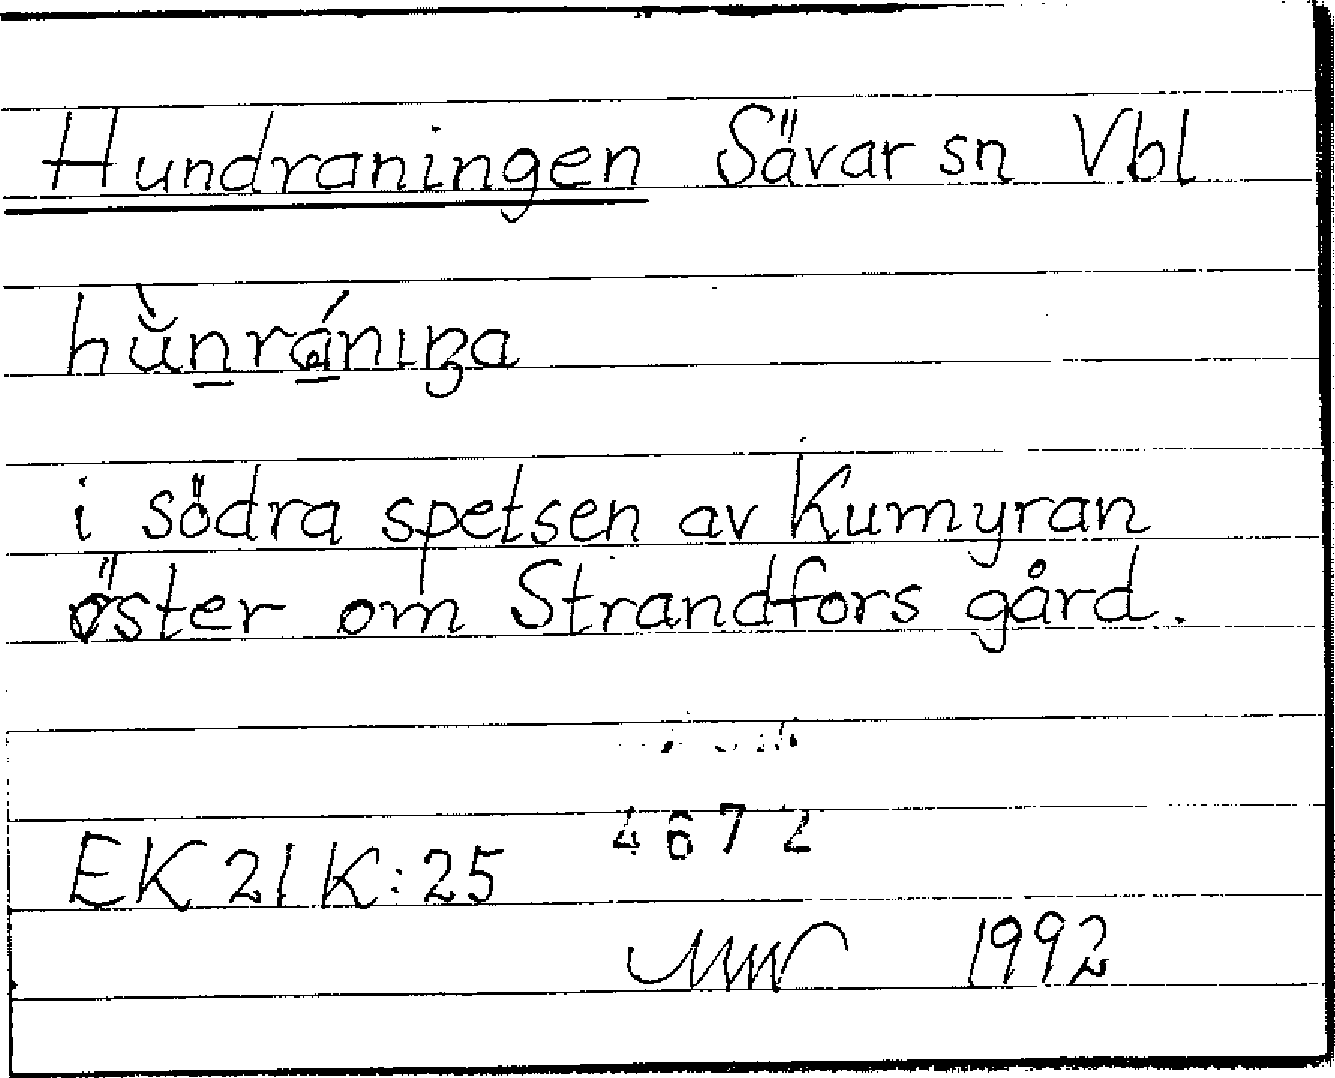 Hundraningen Sävar sn Vbl
i södra spetsen av Kumyran
öster om Strandfors gård.
4672
EK 21 K:25
1992